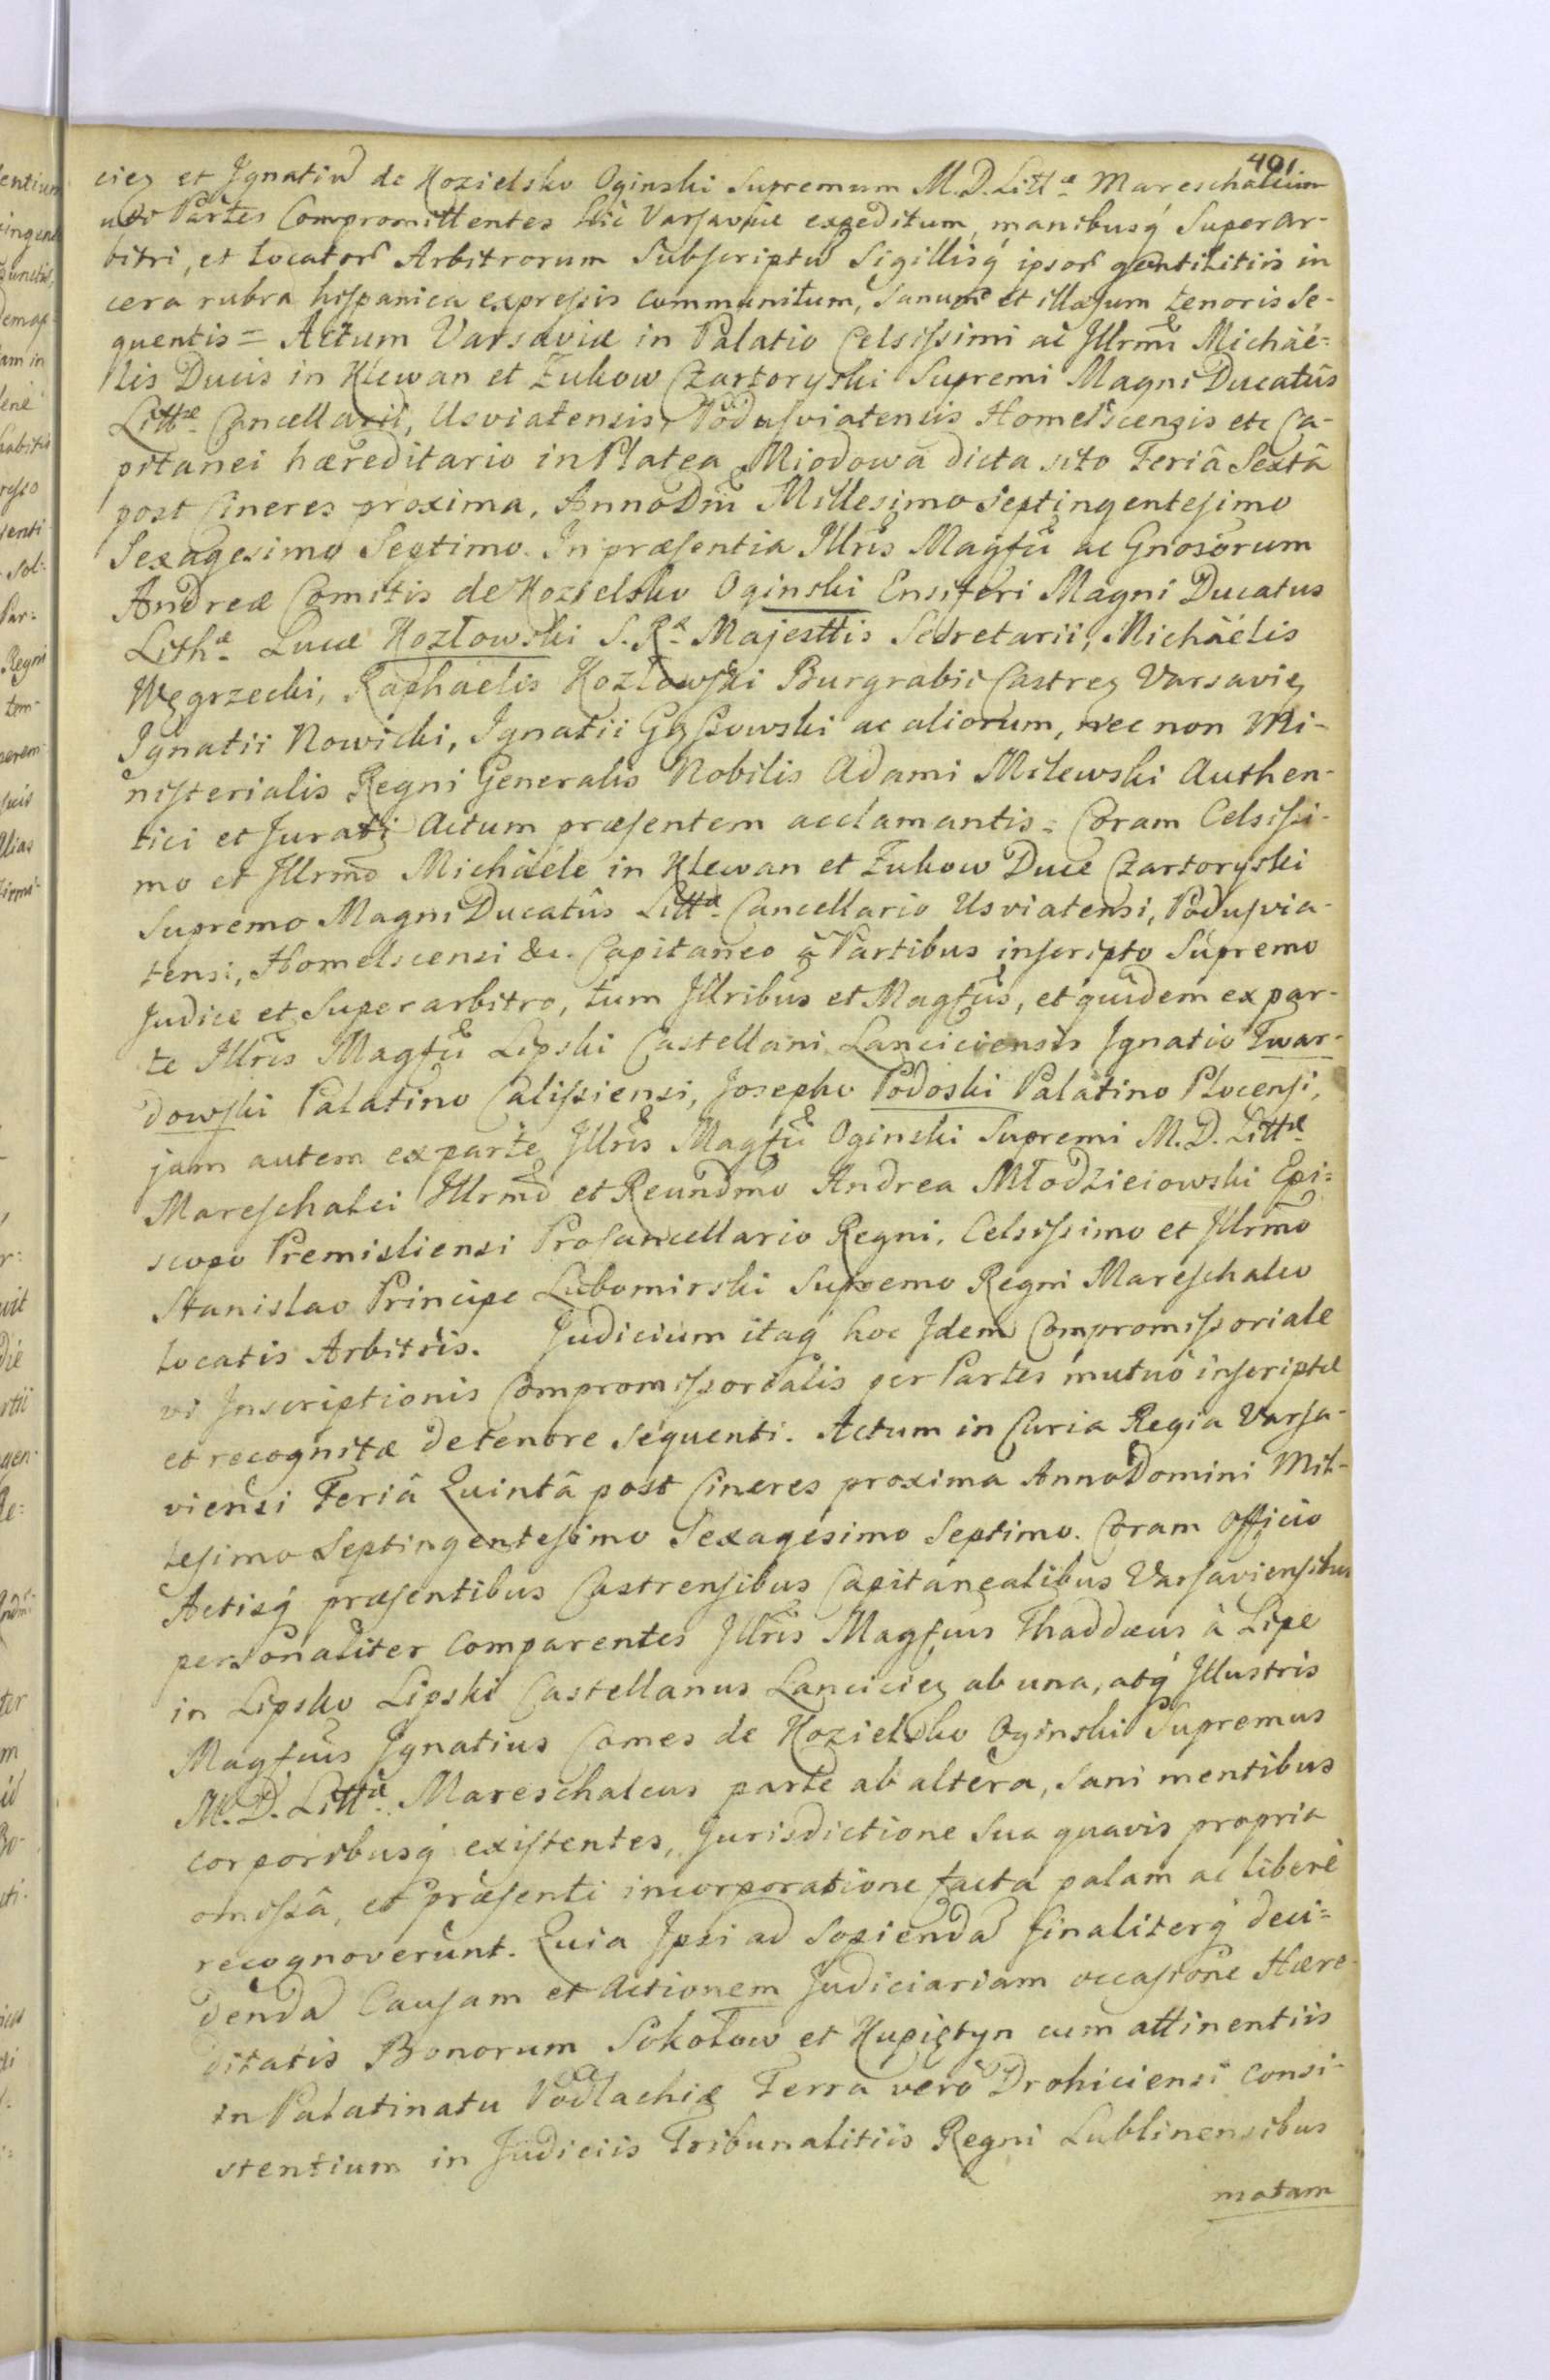 401
ciez et Ignatiū de Kozielsko Oginski Supremum M.D. Littæ Mareschalcum
uti Partes Compromittentes hic Varsaviæ expeditum, manibusq́ Superar-
bitri, et locator̄ Arbitrorum Subscriptū Sigillisq́ ipsor̄ gentilitiis in
cera rubra hispanica expressis communitum, Sanum et illæsum tenoris Se-
quentis = Actum Varsaviæ in Palatio Celsissimi ac Illrmi Michaé-
lis Ducis in Klewan et Zukow Czartoryski Supremi Magni Ducatûs
Littæ Cancellarii, Usviatensis, Podusviatensis Homelscensis etc Ca-
pitanei hæreditario in Platea Miodowa dicta sito Feriâ Sextâ
post Cineres proxima, Anno Dni Millesimo Septingentesimo
Sexagesimo Septimo. In præsentia Illris Magfci ac Gnosorum
Andreæ Comitis de Kozielsko Oginski Ensiferi Magni Ducatus
Lithæ Lucæ Kozłowski S. Ræ Majesttis Secretarii, Michaëlis
Węgrzecki, Raphaélis Kozłowski Burgrabii Castrez Varsaviez
Ignatii Nowicki, Ignatii ac aliorum, nec non Mi-
nisterialis Regni Generalis Nobilis Adami Milewski Authen-
tici et Jurati Actum præsentem acclamantis = Coram Celsissi-
mo et Illrmo Michäele in Klewan et Zukow Duce Czartoryski
Supremo Magni Ducatûs Littæ Cancellario Usviatensi, Podusvia-
tensi, Homelscensi &c. Capitaneo à Partibus inscripto Supremo
Judice et Superarbitro, tum Illribus et Magfcis, et quidem ex par-
te Illris Magfci Lipski Castellani Lanciciensis Ignatio Twar-
dowski Palatino Calissiensi, Josepho Podoski Palatino Plocensi,
jam autem ex parte Illris Magfci Oginski Supremi M.D. Littæ
Mareschalci Illrmo et Reundmo Andrea Młodzieiowski Epi-
scopo Premisliensi Procancellario Regni, Celsissimo et Illrmo
Stanislao Principe Lubomirski Supremo Regni Mareschalco
locatis Arbitris. Judicium itaq́ hoc Idem Compromissoriale
vi Inscriptionis Compromissorialis per Partes mutuò inscriptæ
et recognitæ de tenore sequenti. Actum in Curia Regia Varsa-
viensi Feriâ Quintâ post Cineres proxima Anno Domini Mil-
lesimo Septingentesimo Sexagesimo Septimo. Coram Officio
Actisq́ præsentibus Castrensibus Capitanealibus Varsaviensibus
personaliter comparentes Illris Magfcus Thaddæus à Lipe
in Lipsko Lipski Castellanus Lanciciez ab una, atq́ Illustris
Magfcus Ignatius Comes de Kozielsko Oginski Supremus
M.D. Littæ Mareschalcus parte ab altera, sani mentibus
corporibusq́ existentes, Jurisdictione Sua quavis propria
omissâ, et præsenti incorporatione facta palam ac liberè
recognoverunt. Quia Ipsi ad Sopiendā finaliterq́ deci-
dendā Causam et Actionem Judiciariam occasione Hære-
ditatis Bonorum Sokołow et Kupiętyn cum attinentiis
in Palatinatu Podlachiæ Terra verò Drohiciensi consi-
stentium in Judiciis Tribunalitiis Regni Lublinensibus
motam